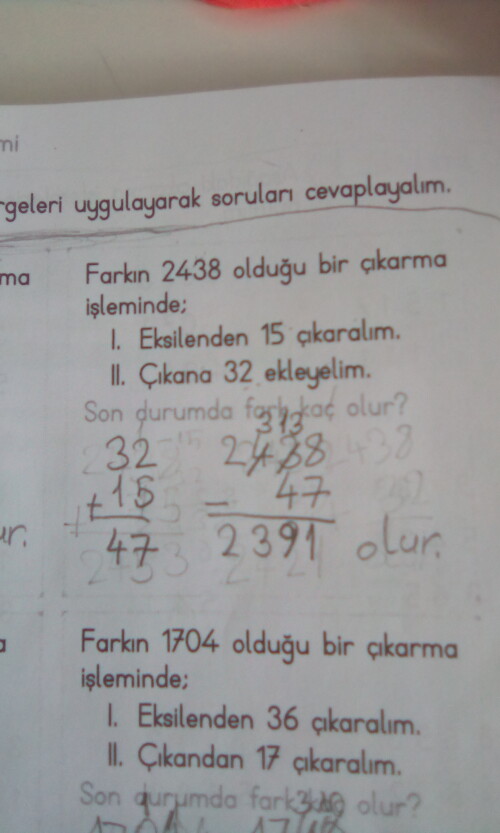 mi
rgeleri uygulayarak soruları cevaplayalım.
ma
Farkın 2438 olduğu bir çıkarma
işleminde;
I. Eksilenden 15 çıkaralım.
II. Çıkana 32 ekleyelim.
Son durumda fark kaç olur?
313
32 2438
+15 - 47
ur. 47 2391 olur.
a
Farkın 1704 olduğu bir çıkarma
işleminde;
I. Eksilenden 36 çıkaralım.
II. Çıkandan 17 çıkaralım.
Son durumda fark kaç olur?